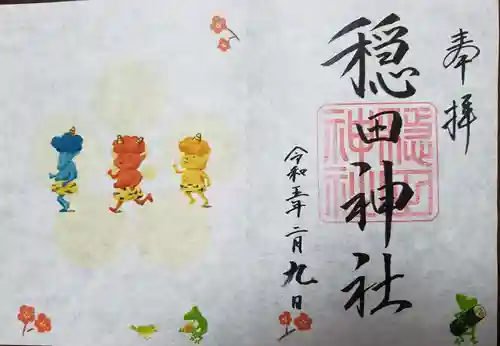 奉拝
穏田神社
穏田
神社
令和五年二月九日